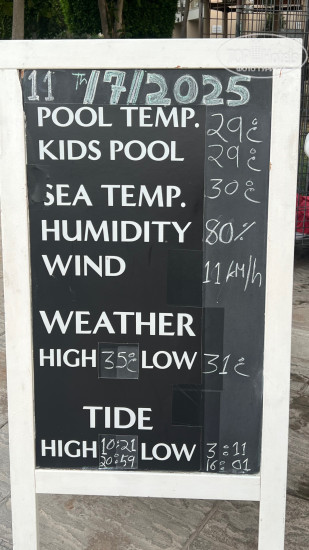 11 Th/7/2025
POOL TEMP. 29°C
KIDS POOL 29°C
SEA TEMP. 30°C
HUMIDITY 80%
WIND 11 KM/h
WEATHER
HIGH 35°C LOW 31°C
TIDE
HIGH 10:21 LOW 3:11
20:59 16:01